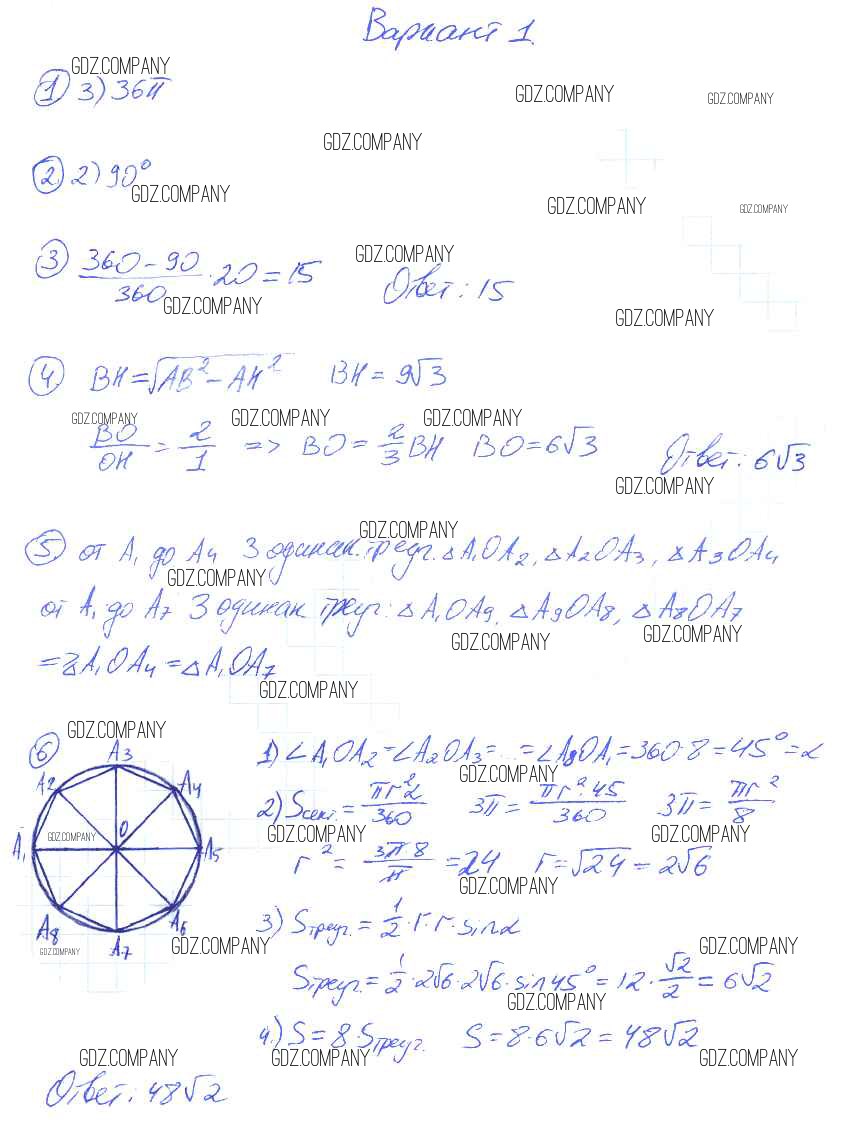 Вариант 1.
GDZ.COMPANY
1 3) 36π
GDZ.COMPANY GDZ.COMPANY
GDZ.COMPANY
2 2) 90°
GDZ.COMPANY
GDZ.COMPANY GDZ.COMPANY
3 (360 - 90)/360 · 20 = 15 Ответ: 15
GDZ.COMPANY
GDZ.COMPANY
GDZ.COMPANY
4 BH = √AB² - AH² BH = 9√3
GDZ.COMPANY GDZ.COMPANY GDZ.COMPANY
BO/OH = 2/1 => BO = 2/3 BH BO = 6√3 Ответ: 6√3
GDZ.COMPANY
GDZ.COMPANY
5 от A₁ до A₄ 3 одинак. треуг. △A₁OA₂, △A₂OA₃, △A₃OA₄
GDZ.COMPANY
от A₁ до A₇ 3 одинак треуг: △A₁OA₉, △A₉OA₈, △A₈OA₇
GDZ.COMPANY GDZ.COMPANY
= △A₁OA₄ = △A₁OA₇
GDZ.COMPANY
GDZ.COMPANY
6
A₃
A₂ A₄
O
GDZ.COMPANY
A₁ A₅
A₈ A₆
A₇
GDZ.COMPANY
1) ∠A₁OA₂ = ∠A₂OA₃ = ... = ∠A₈OA₁ = 360 : 8 = 45° = α
GDZ.COMPANY
2) Sсект. = πr²α/360 3π = πr²·45/360 3π = πr²/8
GDZ.COMPANY GDZ.COMPANY
r² = 3π8/π = 24 r = √24 = 2√6
GDZ.COMPANY
3) Sтреуг. = 1/2 · r · r · sinα
GDZ.COMPANY GDZ.COMPANY
Sтреуг. = 1/2 · 2√6 · 2√6 · sin45° = 12 · √2/2 = 6√2
GDZ.COMPANY
4.) S = 8 · Sтреуг. S = 8 · 6√2 = 48√2
GDZ.COMPANY GDZ.COMPANY GDZ.COMPANY
Ответ: 48√2